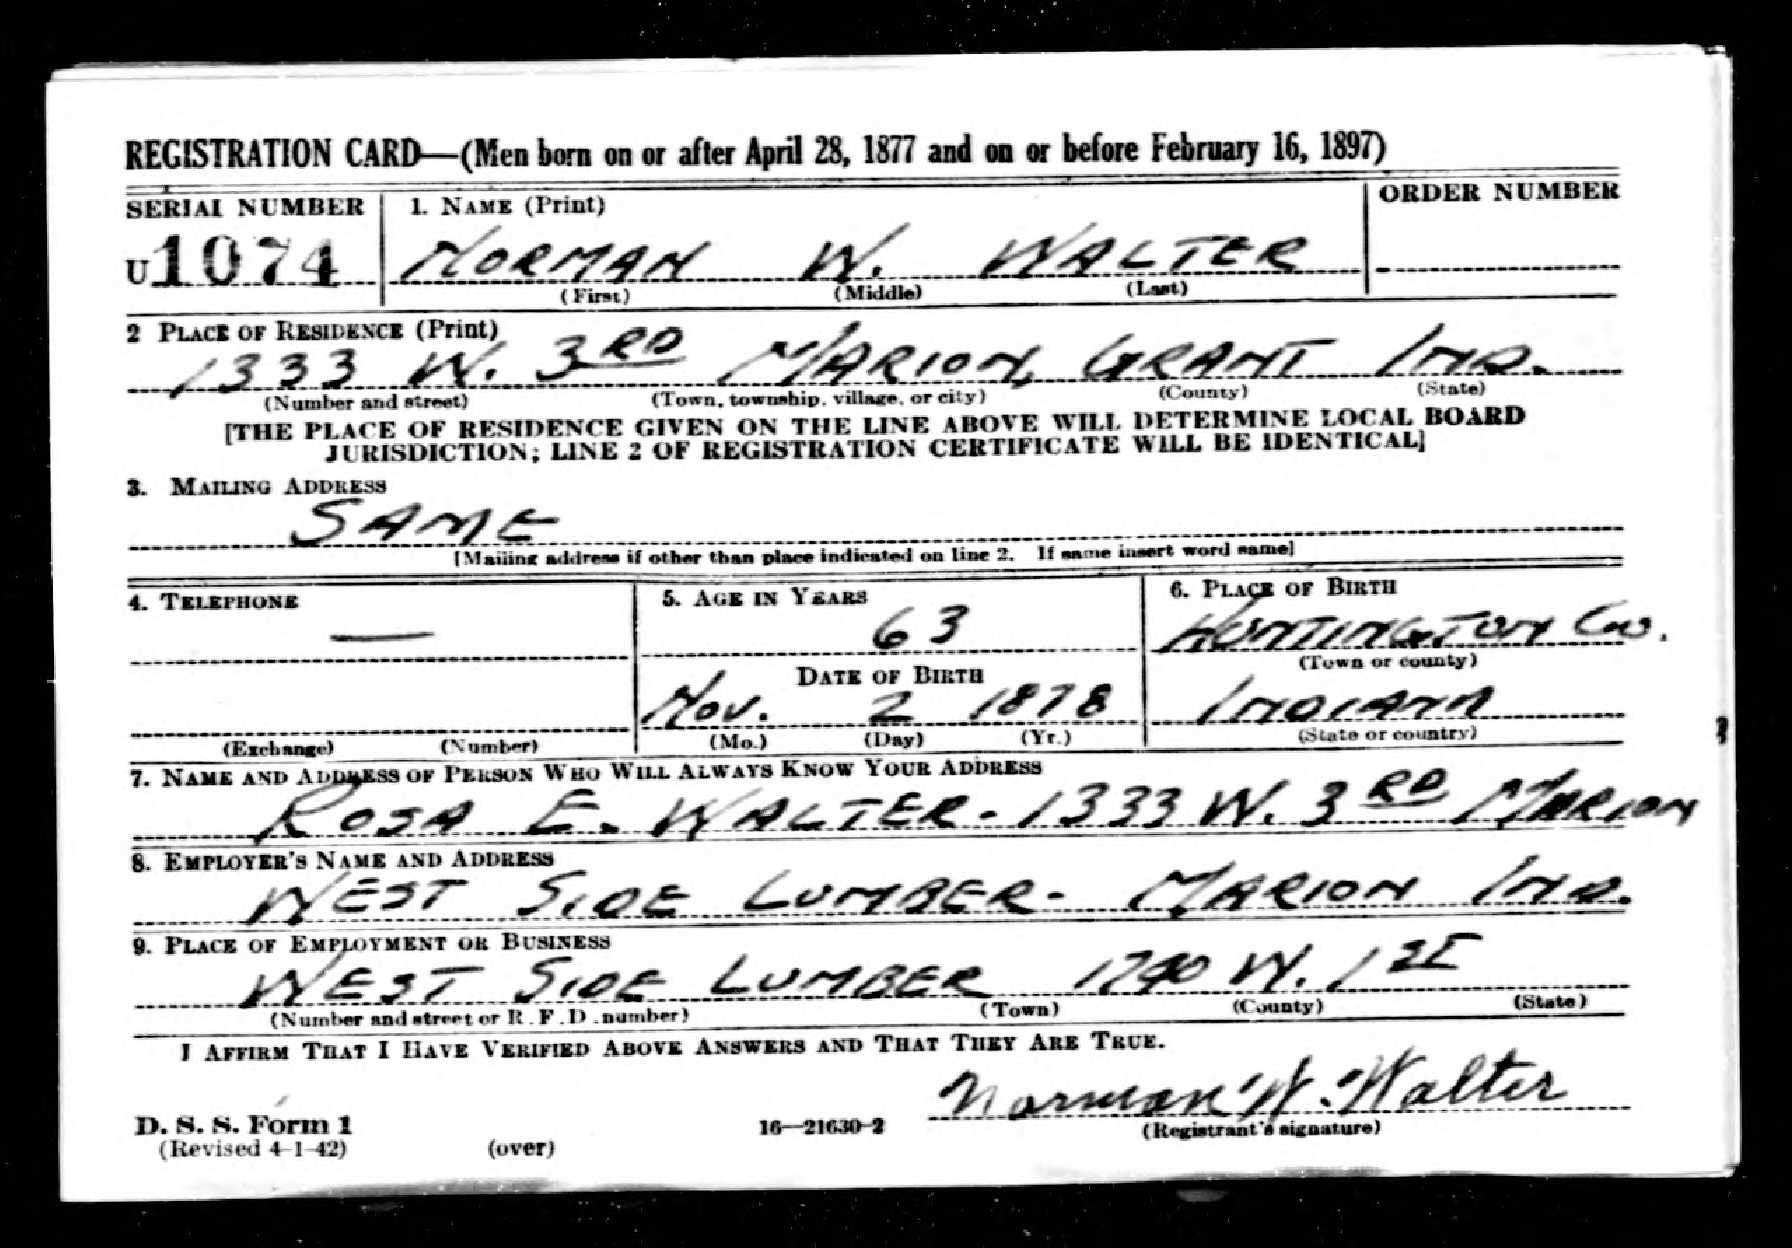 REGISTRATION CARD—(Men born on or after April 28, 1877 and on or before February 16, 1897)
SERIAL NUMBER 1. NAME (Print) ORDER NUMBER
U 1074 NORMAN W. WALTER
(First) (Middle) (Last)
2 PLACE OF RESIDENCE (Print)
1333 W. 3RD MARION, GRANT IND.
(Number and street) (Town, township, village, or city) (County) (State)
[THE PLACE OF RESIDENCE GIVEN ON THE LINE ABOVE WILL DETERMINE LOCAL BOARD
JURISDICTION; LINE 2 OF REGISTRATION CERTIFICATE WILL BE IDENTICAL]
3. MAILING ADDRESS
SAME
[Mailing address if other than place indicated on line 2. If same insert word same]
4. TELEPHONE 5. AGE IN YEARS 6. PLACE OF BIRTH
— 63 HUNTINGTON CO.
(Town or county)
DATE OF BIRTH
NOV. 2 1878 INDIANA
(Exchange) (Number) (Mo.) (Day) (Yr.) (State or country)
7. NAME AND ADDRESS OF PERSON WHO WILL ALWAYS KNOW YOUR ADDRESS
ROSA E. WALTER - 1333 W. 3RD MARION
8. EMPLOYER'S NAME AND ADDRESS
WEST SIDE LUMBER - MARION IND.
9. PLACE OF EMPLOYMENT OR BUSINESS
WEST SIDE LUMBER W. 1ST
(Number and street or R. F. D. number) (Town) (County) (State)
I AFFIRM THAT I HAVE VERIFIED ABOVE ANSWERS AND THAT THEY ARE TRUE.
Norman W. Walter
D. S. S. Form 1 16—21630-2 (Registrant's signature)
(Revised 4-1-42) (over)